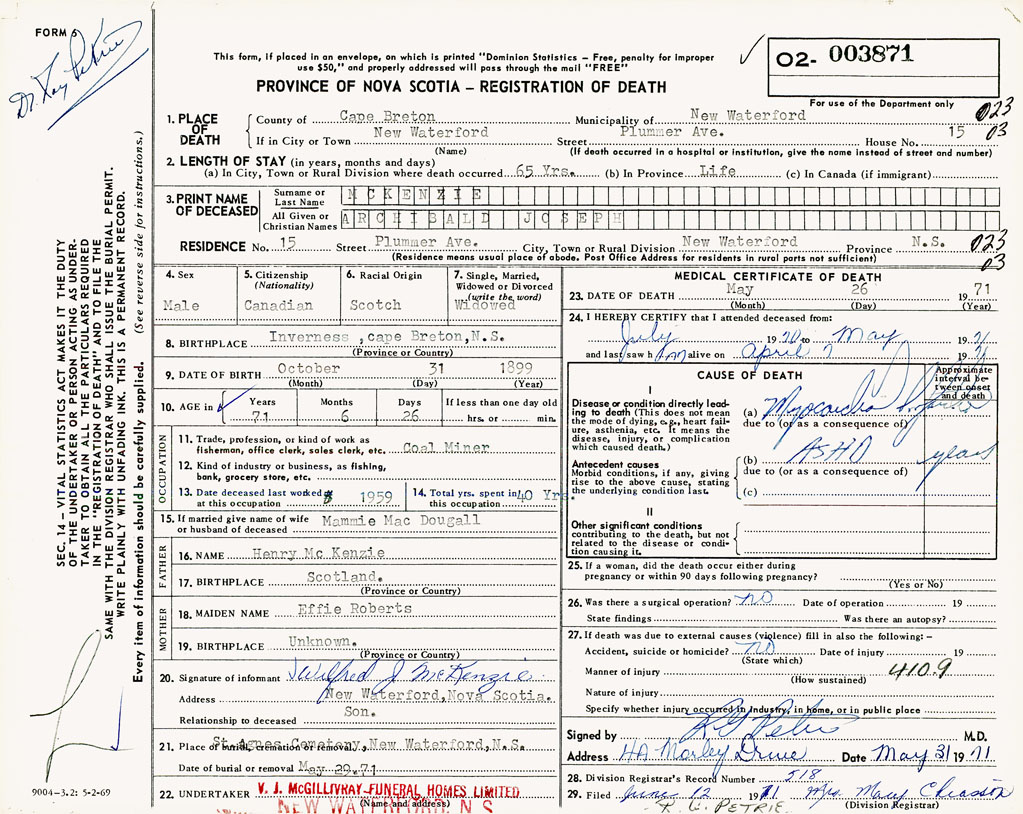 FORM 6
Dr. Kay Petrie
This form, if placed in an envelope, on which is printed "Dominion Statistics – Free, penalty for improper
use $50," and properly addressed will pass through the mail "FREE"
02- 003871
PROVINCE OF NOVA SCOTIA – REGISTRATION OF DEATH
For use of the Department only
023
03
1. PLACE OF DEATH
County of Cape Breton Municipality of New Waterford
If in City or Town New Waterford Street Plummer Ave. House No. 15
(Name) (If death occurred in a hospital or institution, give the name instead of street and number)
2. LENGTH OF STAY (in years, months and days)
(a) In City, Town or Rural Division where death occurred 65 Yrs. (b) In Province Life (c) In Canada (if immigrant)
3. PRINT NAME OF DECEASED
Surname or Last Name MCKENZIE
All Given or Christian Names ARCHIBALD JOSEPH
RESIDENCE No. 15 Street Plummer Ave. City, Town or Rural Division New Waterford Province N.S.
(Residence means usual place of abode. Post Office Address for residents in rural parts not sufficient)
023
03
4. Sex
Male
5. Citizenship
(Nationality)
Canadian
6. Racial Origin
Scotch
7. Single, Married,
Widowed or Divorced
(write the word)
Widowed
8. BIRTHPLACE Inverness ,cape Breton,N.S.
(Province or Country)
9. DATE OF BIRTH October 31 1899
(Month) (Day) (Year)
10. AGE in Years Months Days If less than one day old
71 6 26 hrs. or min.
OCCUPATION
11. Trade, profession, or kind of work as
fisherman, office clerk, sales clerk, etc. Coal Miner
12. Kind of industry or business, as fishing,
bank, grocery store, etc.
13. Date deceased last worked
at this occupation 1959
14. Total yrs. spent in
this occupation 40 Yrs.
15. If married give name of wife
or husband of deceased Mammie Mac Dougall
FATHER
16. NAME Henry Mc Kenzie
17. BIRTHPLACE Scotland.
(Province or Country)
MOTHER
18. MAIDEN NAME Effie Roberts
19. BIRTHPLACE Unknown.
(Province or Country)
20. Signature of informant Wilfred J McKenzie
Address New Waterford,Nova Scotia.
Relationship to deceased Son.
21. Place of burial, cremation or removal St Agnes Cemetery,New Waterford,N.S.
Date of burial or removal May 29.71
22. UNDERTAKER V. J. McGILLIVRAY-FUNERAL HOMES LIMITED
(Name and address)
NEW WATERFORD N S
MEDICAL CERTIFICATE OF DEATH
23. DATE OF DEATH May 26 1971
(Month) (Day) (Year)
24. I HEREBY CERTIFY that I attended deceased from:
July 1970 to May 1971
and last saw him alive on April 7 1971
CAUSE OF DEATH
Approximate
interval be-
tween onset
and death
I
Disease or condition directly lead-
ing to death (This does not mean
the mode of dying, e.g., heart fail-
ure, asthenia, etc. It means the
disease, injury, or complication
which caused death.)
(a) Myocardial
due to (or as a consequence of)
Antecedent causes
Morbid conditions, if any, giving
rise to the above cause, stating
the underlying condition last.
(b) ASHD years
due to (or as a consequence of)
(c)
II
Other significant conditions
contributing to the death, but not
related to the disease or condi-
tion causing it.
25. If a woman, did the death occur either during
pregnancy or within 90 days following pregnancy?
(Yes or No)
26. Was there a surgical operation? no Date of operation 19
State findings Was there an autopsy?
27. If death was due to external causes (violence) fill in also the following: –
Accident, suicide or homicide? no Date of injury 19
(State which)
Manner of injury 410.9
(How sustained)
Nature of injury
Specify whether injury occurred in industry, in home, or in public place
Signed by M.D.
Address Marley Drive Date May 31 1971
28. Division Registrar's Record Number 518
29. Filed June 12 1971 Mrs. Mary Chiasson
(Division Registrar)
K. G. PETRIE
SEC. 14 – VITAL STATISTICS ACT MAKES IT THE DUTY
OF THE UNDERTAKER OR PERSON ACTING AS UNDER-
TAKER TO OBTAIN ALL THE PARTICULARS REQUIRED
IN THE "REGISTRATION OF DEATH" AND TO FILE THE
SAME WITH THE DIVISION REGISTRAR WHO SHALL ISSUE THE BURIAL PERMIT.
WRITE PLAINLY WITH UNFADING INK. THIS IS A PERMANENT RECORD.
Every item of information should be carefully supplied. (See reverse side for instructions.)
9004-3.2: 5-2-69